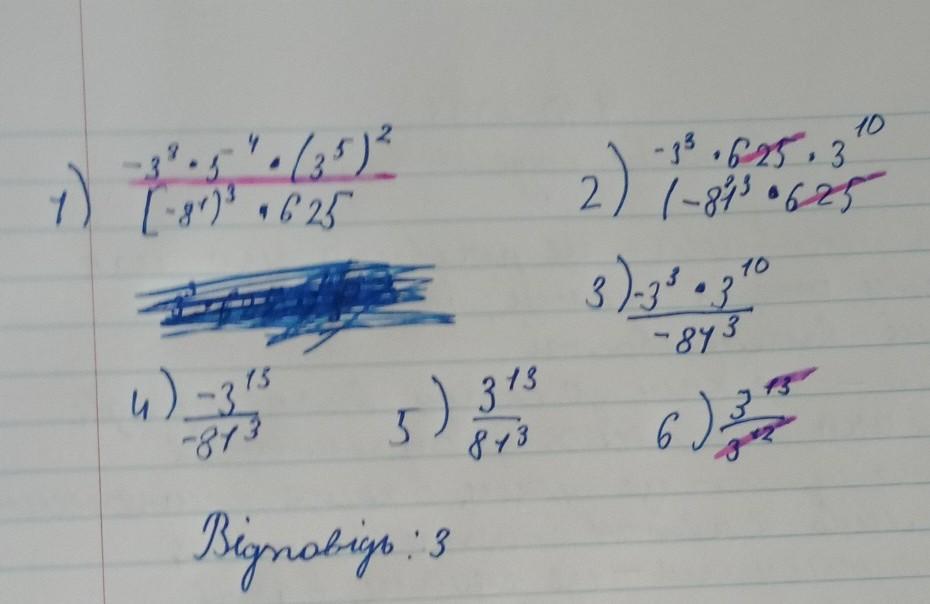 1) -3³ · 5⁻⁴ · (3⁵)²
[-81)³ · 625
2) -3³ · 625 · 3¹⁰
(-81³ · 625
3) -3³ · 3¹⁰
-81³
4) -3¹³
-81³
5) 3¹³
81³
6) 3¹³
3¹²
Відповідь: 3